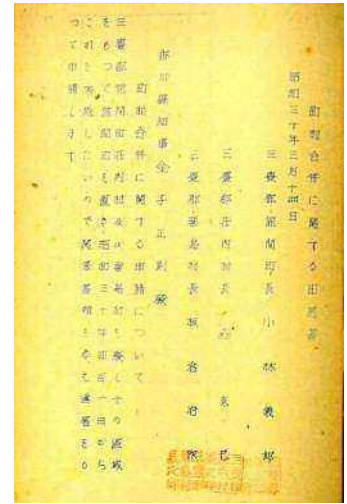 町村合併に関する申請書
昭和三十年三月十四日
三豊郡詫間町長 小林義郎
三豊郡荘内村長 克己
三豊郡粟島村長 坂
香川県知事金子正則殿
町村合併に関する申請について
三豊郡詫間町荘内村及び粟島村を廃しその区域
をもつて詫間町を置き昭和三十年四月一日から
これを実施したいので関係書類を添え連署をも
つて申請します